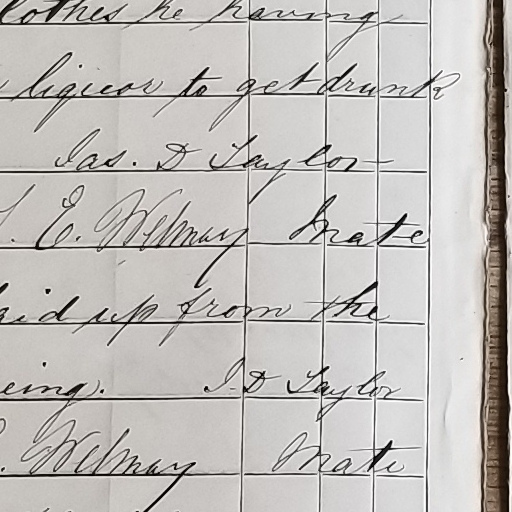 clothes he having
liquor to get drunk
Jas. D Taylor
E. Welmay Mate
laid up from the
eing. J. D Taylor
Welmay Mate